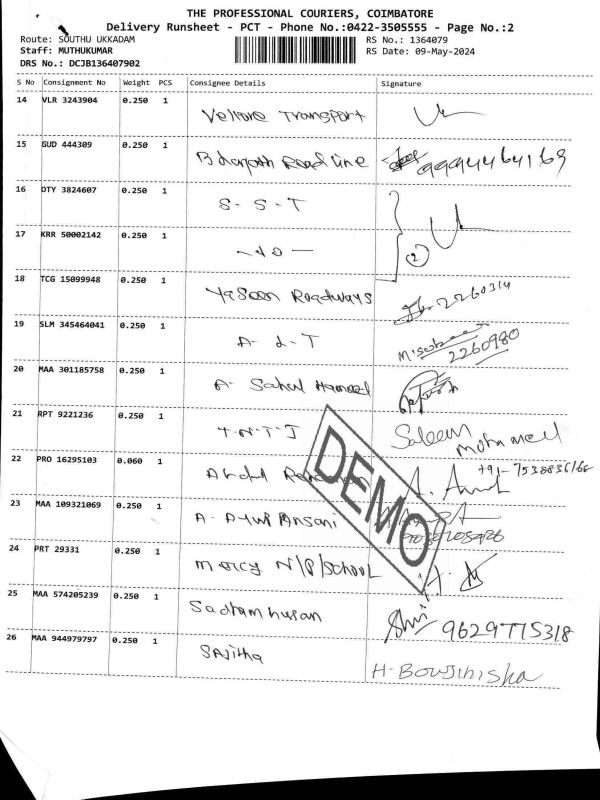 THE PROFESSIONAL COURIERS, COIMBATORE
Delivery Runsheet - PCT - Phone No.:0422-3505555 - Page No.:2
Route: SOUTHU UKKADAM RS No.: 1364079
Staff: MUTHUKUMAR RS Date: 09-May-2024
DRS No.: DCJB136407902
S No Consignment No Weight PCS Consignee Details Signature
14 VLR 3243904 0.250 1 Vellore Transport
15 GUD 444309 0.250 1 Bharath Road line 9994464169
16 OTY 3824607 0.250 1 S- S- T
17 KRR 50002142 0.250 1 -do- 2
18 TCG 15099948 0.250 1 Roadways 2260314
19 SLM 345464041 0.250 1 A- L- T 2260980
20 MAA 301185758 0.250 1 A- Sahul Hameed
21 RPT 9221236 0.250 1 T-N-T-J Saleem Mohammed
22 PRO 16295103 0.060 1 Abdul +91-7538836166
23 MAA 109321069 0.250 1 A- Ansari
24 PRT 29331 0.250 1 Mercy N/P/School
25 MAA 574205239 0.250 1 Sadhamhusan 9629775318
26 MAA 944979797 0.250 1 Sajitha H-Bowjinisha
DEMO